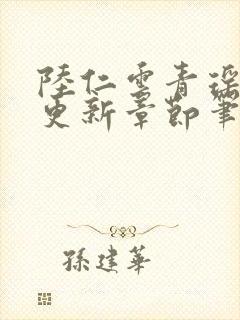 陸仁雲青瑶
更新章節筆
孫建華